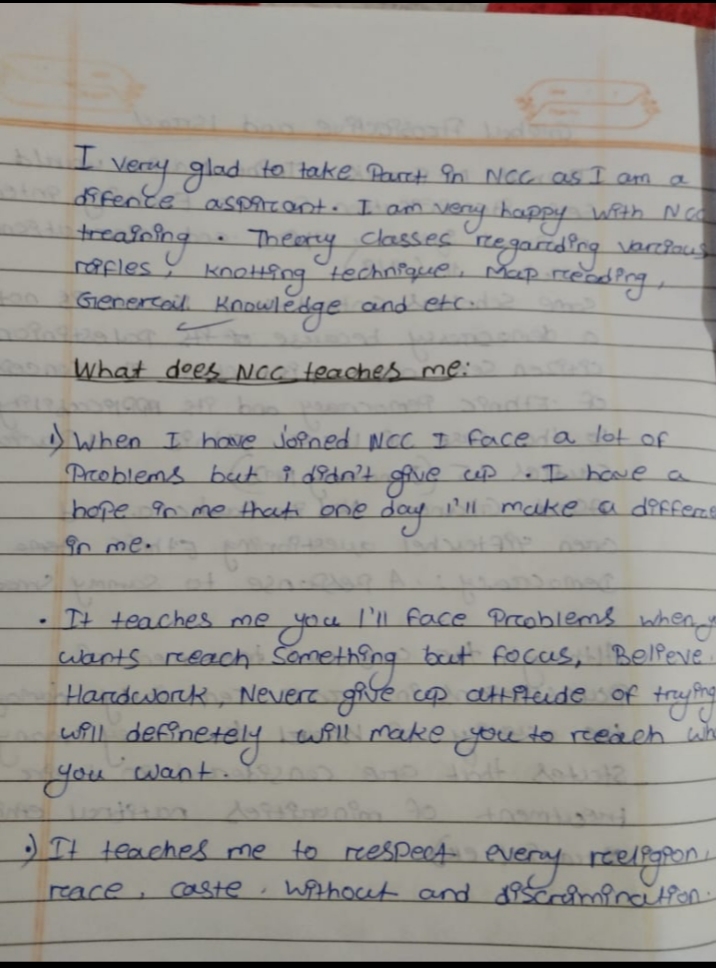 I very glad to take Part in NCC as I am a
difence aspirant. I am very happy with NCC
treaining. Theory classes regarding various
raifles, knotting technique, Map reading,
Generoal knowledge and etc.
What does NCC teaches me:
1) When I have joined NCC I face a lot of
Problems but i didn't give up. I have a
hope in me that one day i'll make a differe
in me.
• It teaches me you I'll face Problems when y
wants reach something but focus, Believe,
Hardwork, Never give up attitude of trying
will definetely will make you to reach wh
you want.
•) It teaches me to respect every religion,
race, caste, without and discrimination.